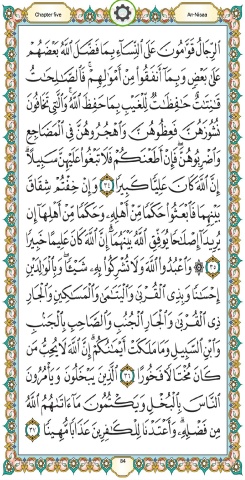 Chapter five
An-Nisaa
ٱلرِّجَالُ قَوَّٰمُونَ عَلَى ٱلنِّسَآءِ بِمَا فَضَّلَ ٱللَّهُ بَعْضَهُمْ
عَلَىٰ بَعْضٍ وَبِمَآ أَنفَقُوا۟ مِنْ أَمْوَٰلِهِمْ ۚ فَٱلصَّٰلِحَٰتُ
قَٰنِتَٰتٌ حَٰفِظَٰتٌ لِّلْغَيْبِ بِمَا حَفِظَ ٱللَّهُ ۚ وَٱلَّٰتِى تَخَافُونَ
نُشُوزَهُنَّ فَعِظُوهُنَّ وَٱهْجُرُوهُنَّ فِى ٱلْمَضَاجِعِ
وَٱضْرِبُوهُنَّ ۖ فَإِنْ أَطَعْنَكُمْ فَلَا تَبْغُوا۟ عَلَيْهِنَّ سَبِيلًا ۗ
إِنَّ ٱللَّهَ كَانَ عَلِيًّا كَبِيرًا ٣٤ وَإِنْ خِفْتُمْ شِقَاقَ
بَيْنِهِمَا فَٱبْعَثُوا۟ حَكَمًا مِّنْ أَهْلِهِۦ وَحَكَمًا مِّنْ أَهْلِهَآ إِن
يُرِيدَآ إِصْلَٰحًا يُوَفِّقِ ٱللَّهُ بَيْنَهُمَآ ۗ إِنَّ ٱللَّهَ كَانَ عَلِيمًا خَبِيرًا
٣٥ ۞ وَٱعْبُدُوا۟ ٱللَّهَ وَلَا تُشْرِكُوا۟ بِهِۦ شَيْـًٔا ۖ وَبِٱلْوَٰلِدَيْنِ
إِحْسَٰنًا وَبِذِى ٱلْقُرْبَىٰ وَٱلْيَتَٰمَىٰ وَٱلْمَسَٰكِينِ وَٱلْجَارِ
ذِى ٱلْقُرْبَىٰ وَٱلْجَارِ ٱلْجُنُبِ وَٱلصَّاحِبِ بِٱلْجَنۢبِ
وَٱبْنِ ٱلسَّبِيلِ وَمَا مَلَكَتْ أَيْمَٰنُكُمْ ۗ إِنَّ ٱللَّهَ لَا يُحِبُّ مَن
كَانَ مُخْتَالًا فَخُورًا ٣٦ ٱلَّذِينَ يَبْخَلُونَ وَيَأْمُرُونَ
ٱلنَّاسَ بِٱلْبُخْلِ وَيَكْتُمُونَ مَآ ءَاتَىٰهُمُ ٱللَّهُ
مِن فَضْلِهِۦ ۗ وَأَعْتَدْنَا لِلْكَٰفِرِينَ عَذَابًا مُّهِينًا ٣٧
84